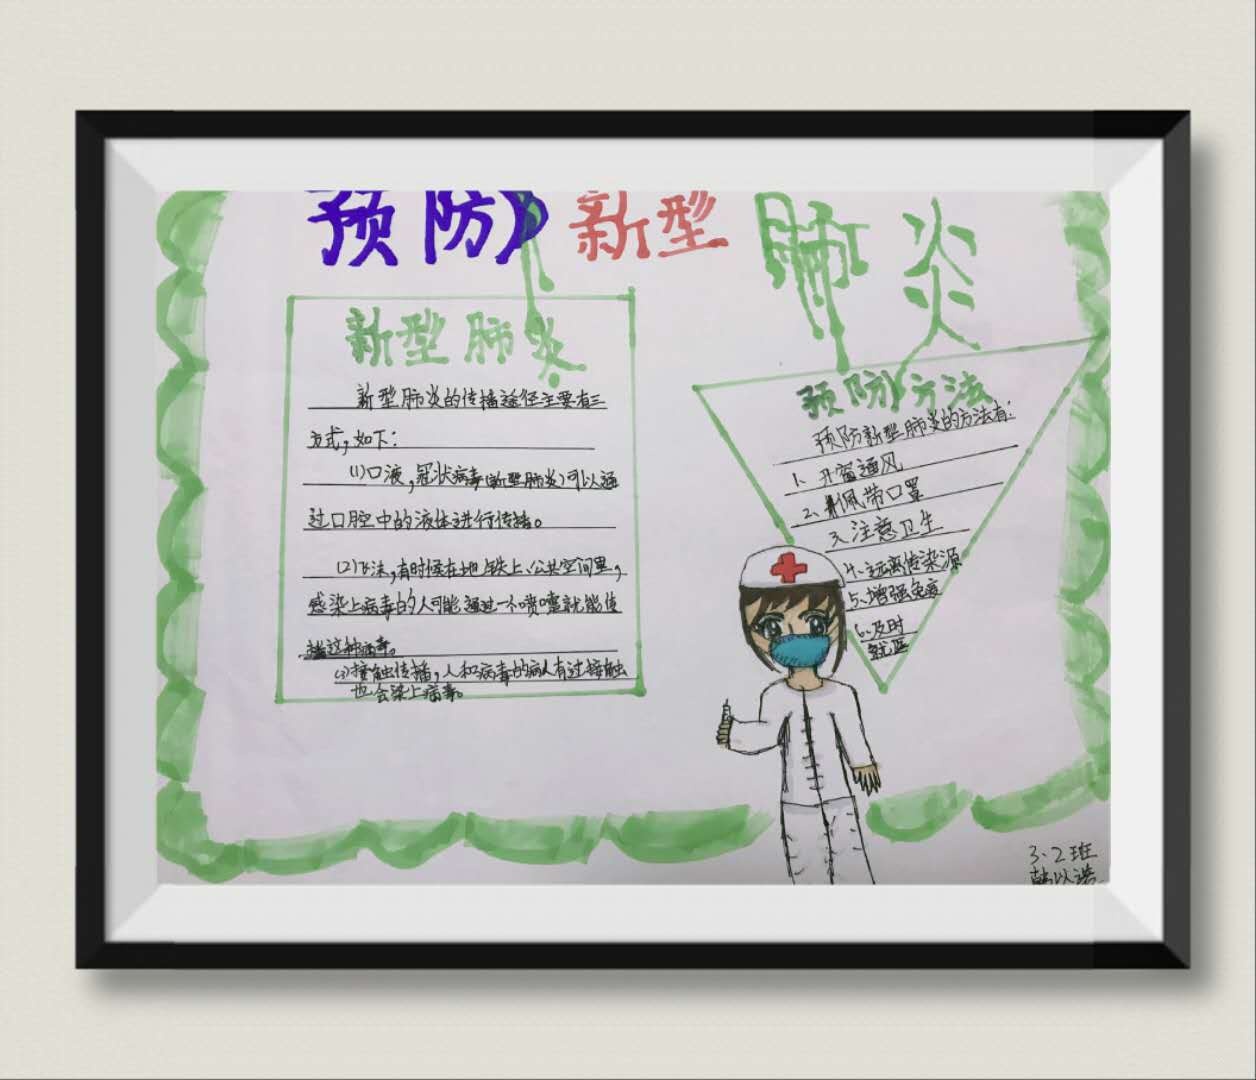 预防 新型 肺炎
新型肺炎
新型肺炎的传播途径主要有三
方式,如下:
(1)口液,冠状病毒(新型肺炎)可以通
过口腔中的液体进行传播。
(2)飞沫,有时候在地铁上、公共空间里,
感染上病毒的人可能通过一个喷嚏就能传
播这种病毒。
(3)接触传播,人和病毒的病人有过接触
也会染上病毒。
预防方法
预防新型肺炎的方法有:
1、开窗通风
2、佩带口罩
3、注意卫生
4、远离传染源
5、增强免疫
6、及时
就医
3、2班
韩以诺